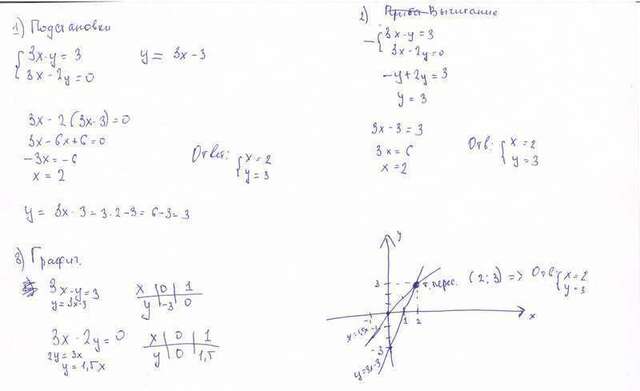 1) Подстановки
{3x-y=3
3x-2y=0
y = 3x-3
3x-2(3x-3)=0
3x-6x+6=0
-3x=-6
x=2
Ответ: {x=2
y=3
y = 3x-3=3·2-3=6-3=3
2) Вычитание
-{3x-y=3
3x-2y=0
-y+2y=3
y=3
3x-3=3
3x=6
x=2
Отв: {x=2
y=3
3) Графич.
3x-y=3
y=3x-3
x | 0 | 1
y | -3 | 0
3x-2y=0
2y=3x
y=1,5x
x | 0 | 1
y | 0 | 1,5
y
3
т. перес. (2;3) => Отв {x=2
y=3
-1 1 2 x
-3
y=3x-3